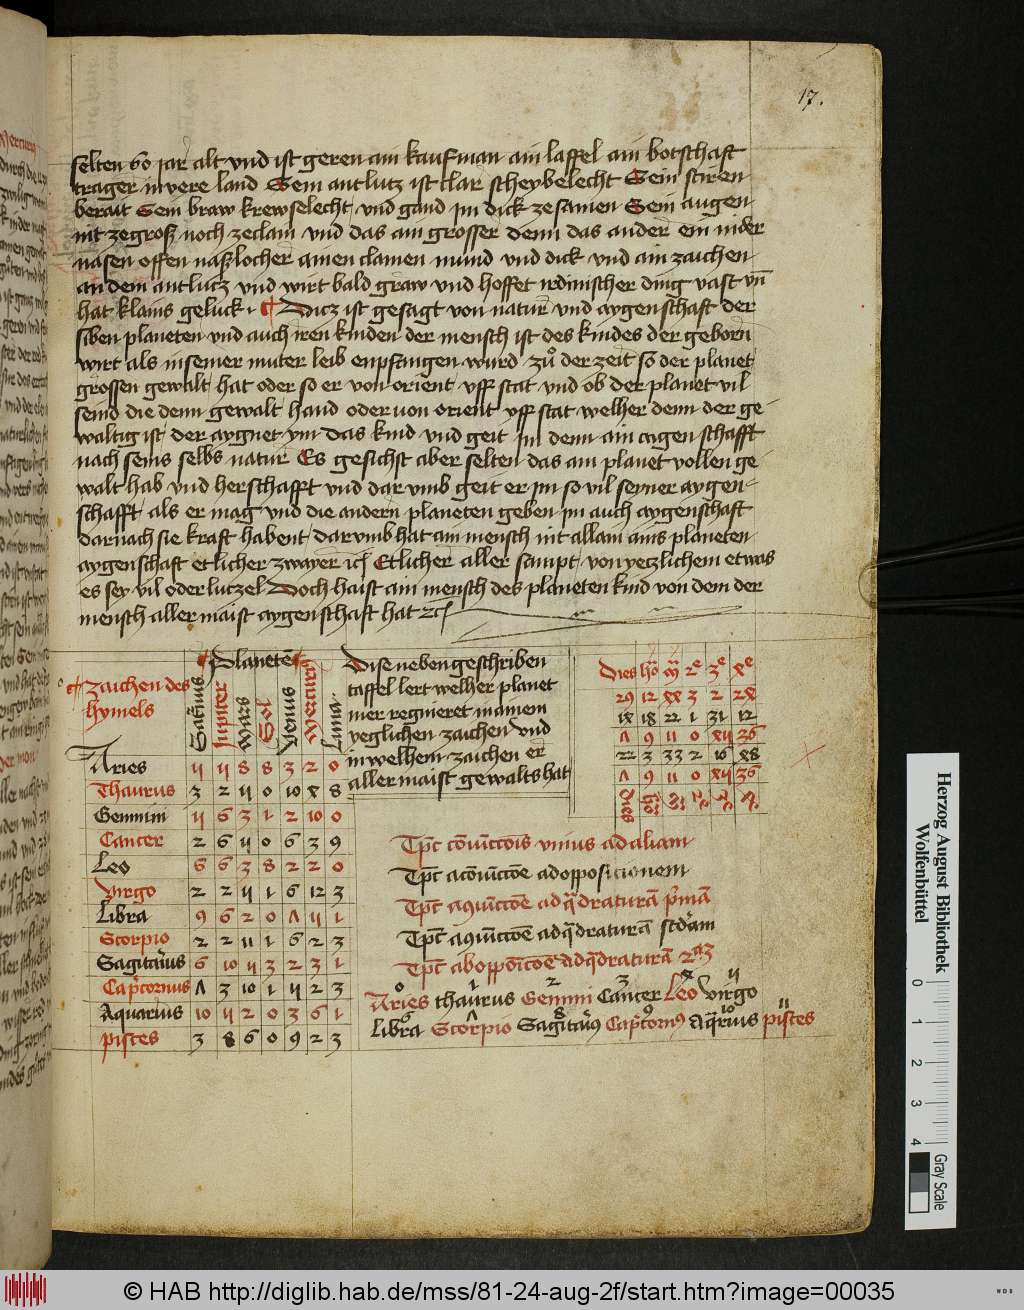 17.
selten 60 jar alt vnd ist geren ain kaufman ain laffel ain botschaft
trager in vere land Sein antlutz ist clar scheybelecht Sein stiren
berait Sein braw krewselecht vnd gand im dick ze samen Sein augen
nit ze groß noch ze clain vnd das ain grosser denn das ander ein nider
nasen offen naßlocher ainen clainen mund vnd dick vnd ain zaichen
an dem antlucz vnd wirt bald graw vnd hoffet irdinischer ding vast vn̄
hat klains geluck Ducz ist gesagt von natur vnd aygenschaft der
siben planeten vnd auch iren kinden der mensch ist des kindes der geborn
wirt als in seiner muter leib enpfangen wurd zu der zeit so der planet
grossen gewalt hat oder so er von orient vff stat vnd ob der planet vil
seind die denn gewalt hand oder von orient vff stat welher denn der ge
waltig ist der aygnet ym das kind vnd geit im denn ain aigen schafft
nach seins selbs natur Es gesichst aber selten das ain planet vollen ge
walt hab vnd herschafft vnd dar vmb geit er im so vil seyner aygen
schafft als er mag vnd die andern planeten geben im auch aygenschaft
darnach sie kraft habent dar vmb hat ain mensch nit allain ains planeten
aygenschaft etlicher zwayer Etlicher aller sampt von yetzlichem etwas
es sey vil oder lutzel Doch haist ain mensch des planeten kind von dem der
mensch aller maist aygenschaft hat
Planetē
zaichen des
hymels
Saturnus Jupiter Mars Sol Venus Mercuri Luna
Aries 4 4 8 8 3 2 0
Thaurus 3 2 4 0 10 X 8
Gemmini 4 6 3 1 2 10 0
Cancer 2 6 4 0 6 3 9
Leo 6 6 3 8 2 2 0
Virgo 2 2 4 1 6 12 3
Libra 9 6 2 0 Λ 4 1
Scorpio 2 2 11 1 6 2 3
Sagitarius 6 10 4 3 2 3 1
Capricornus Λ 3 10 1 4 2 3
Aquarius 10 4 2 0 3 6 1
pisces 3 8 6 0 9 2 3
Dise neben geschriben
taffel lert welher planet
mer regnieret in ainem
yeglichen zaichen vnd
in welhem zaichen er
aller maist gewalts hat
Dies
29 12 XX 3 2 2X
1X 18 22 1 31 12
Λ 9 11 0 X4 36
22 3 33 2 16 X8
Λ 9 11 0 X4 36
Tpc̄ cōiūctōis vnius ad aliam
Tpc̄ a cōiūctōe ad oppositionem
Tpc̄ a 9iūctōe ad q̄draturā p̄mā
Tpc̄ a 9iūctōe ad q̄draturā scdam
Tpc̄ ab oppōitōe ad q̄draturā 2am
0 1 2 3 X 4
Aries thaurus Gemini Cancer Leo virgo
6 Λ 8 9 10 11
Libra Scorpio Sagitari9 Capricorn9 Aq̄rius pisces
Herzog August Bibliothek
Wolfenbüttel
0 1 2 3 4
Gray Scale
© HAB http://diglib.hab.de/mss/81-24-aug-2f/start.htm?image=00035